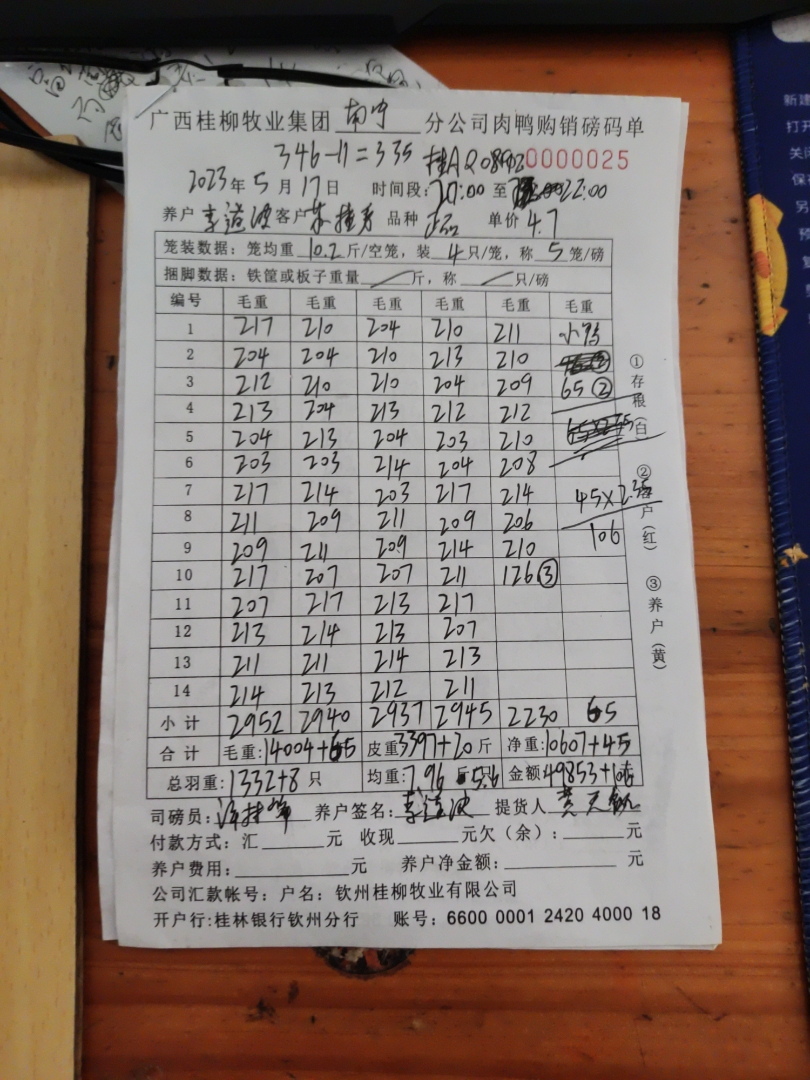 广西桂柳牧业集团 南宁 分公司肉鸭购销磅码单
346-11=335 桂A 0000025
2023年5月17日 时间段:20:00至22:00
养户 李道波 客户 品种 正品 单价 4.7
笼装数据:笼均重 10.2 斤/空笼,装 4 只/笼,称 5 笼/磅
捆脚数据:铁筐或板子重量 斤,称 只/磅
编号 毛重 毛重 毛重 毛重 毛重 毛重
1 217 210 204 210 211 小鸭
2 204 204 210 213 210
3 212 210 210 204 209 65②
4 213 204 213 212 212
5 204 213 204 203 210
6 203 203 214 204 208
7 217 214 203 217 214 45×2.35
8 211 209 211 209 206
9 209 211 209 214 210 106
10 217 207 207 211 126③
11 207 217 213 217
12 213 214 213 207
13 211 211 214 213
14 214 213 212 211
小计 2952 2940 2937 2945 2230 65
合计 毛重:14004+65 皮重3397+20斤 净重:10607+45
总羽重:1332+8只 均重:7.96 5.6 金额49853+106
司磅员: 养户签名:李道波 提货人
付款方式:汇 元 收现 元欠(余): 元
养户费用: 元 养户净金额: 元
公司汇款帐号:户名:钦州桂柳牧业有限公司
开户行:桂林银行钦州分行 账号:6600 0001 2420 4000 18
①存根(白)
②客户(红)
③养户(黄)
新建
打开
关闭
保存